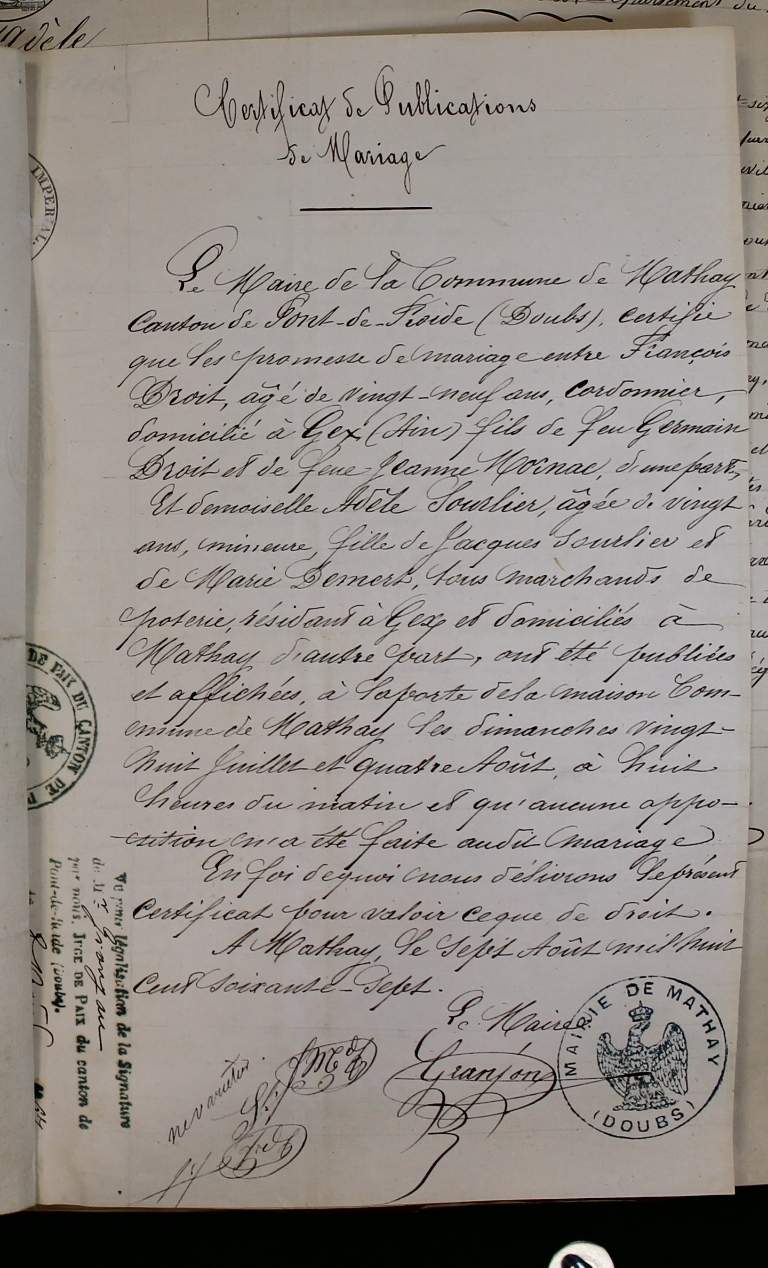 Certificat de Publications
de Mariage
Le Maire de la Commune de Mathay
Canton de Pont-de-Roide (Doubs), certifie
que les promesse de mariage entre François
Droit, âgé de vingt-neuf ans, cordonnier,
domicilié à Gex (Ain) fils de feu Germain
Droit et de feue Jeanne, d'une part,
Et demoiselle Adèle Sourlier, âgée de vingt
ans, mineure, fille de Jacques Sourlier et
de Marie Demert, tous marchands de
poterie, résidant à Gex et domiciliés à
Mathay d'autre part, ont été publiées
et affichées, à la porte de la maison Com-
mune de Mathay les dimanches vingt-
huit Juillet et quatre Août, à huit
heures du matin et qu'aucune oppo-
sition n'a été faite audit mariage
En foi de quoi nous délivrons le présent
certificat pour valoir ce que de droit.
A Mathay, le sept Août mil huit
cent soixante-sept.
Le Maire
Granjon
MAIRIE DE MATHAY
(DOUBS)
ne varietur.
Vu pour légalisation de la Signature
de Mr Granjon
par nous, JUGE DE PAIX du canton de
Pont-de-Roide (Doubs).
DE PAIX DU CANTON DE
IMPERIAL